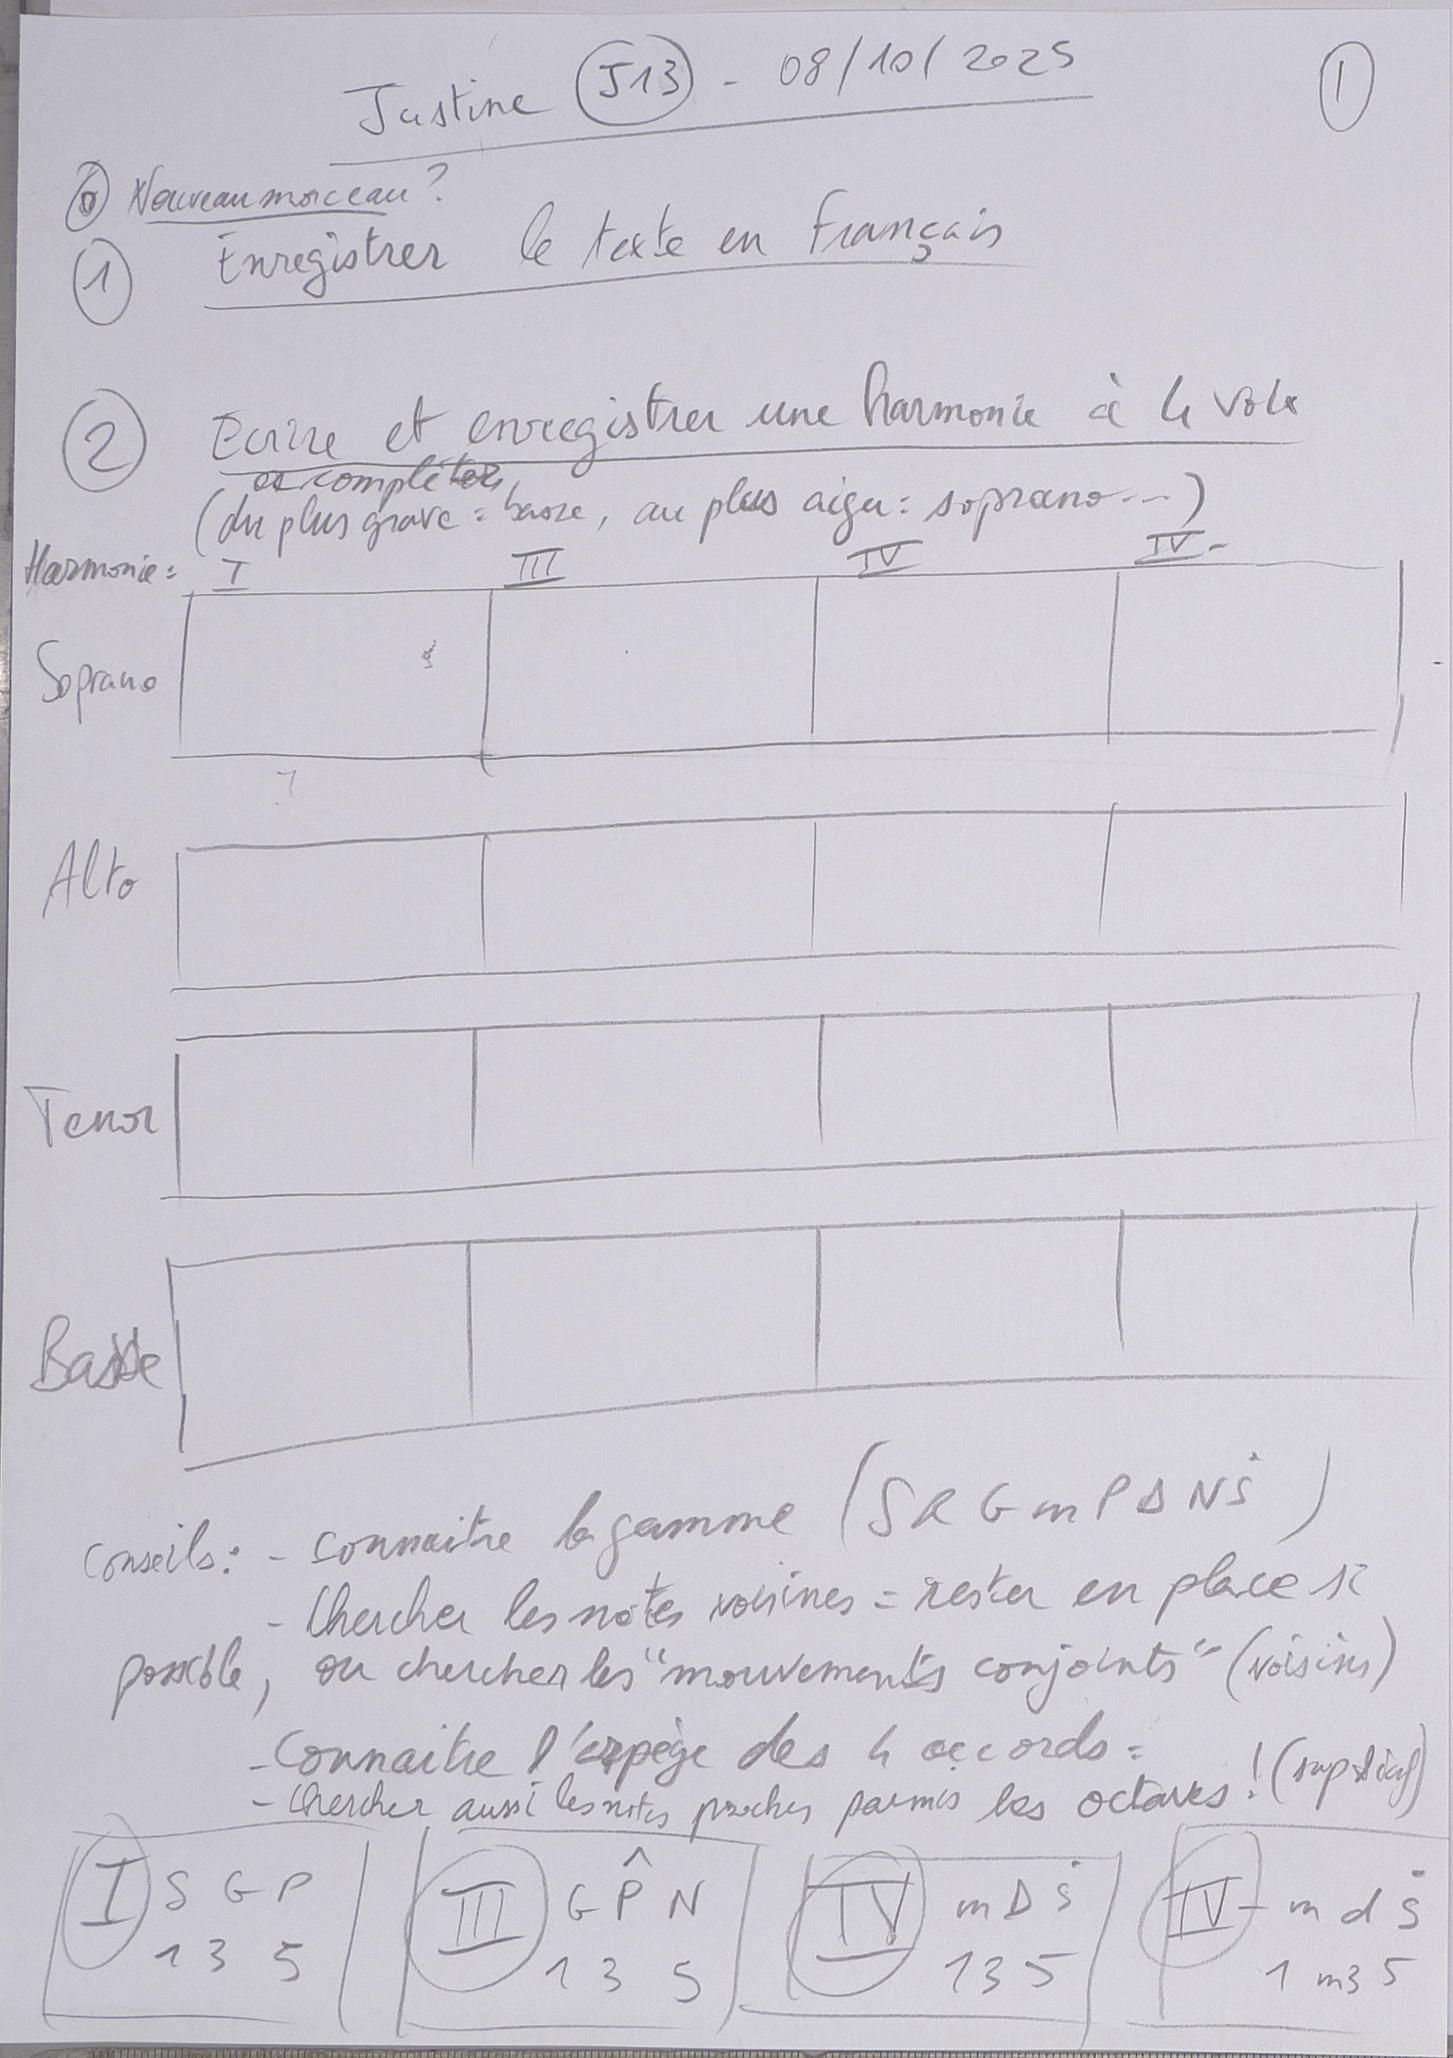 Justine J13 - 08/10/2025
1
0 Nouveau morceau ?
1 Enregistrer le texte en Français
2 Ecrire et enregistrer une harmonie à 4 voix
et compléter
(du plus grave = basse, au plus aigu = soprano ---)
Harmonie = I III IV IV-
Soprano
Alto
Tenor
Basse
Conseils : - connaitre la gamme (S R G m P D N Ṡ)
- Chercher les notes voisines = rester en place si
possible, ou chercher les "mouvements conjoints" (voisins)
- Connaitre l'arpège des 4 accords =
- Chercher aussi les notes proches parmis les octaves ! (
I S G P
1 3 5
III G P̂ N
1 3 5
IV m D Ṡ
1 3 5
IV- m d Ṡ
1 m3 5